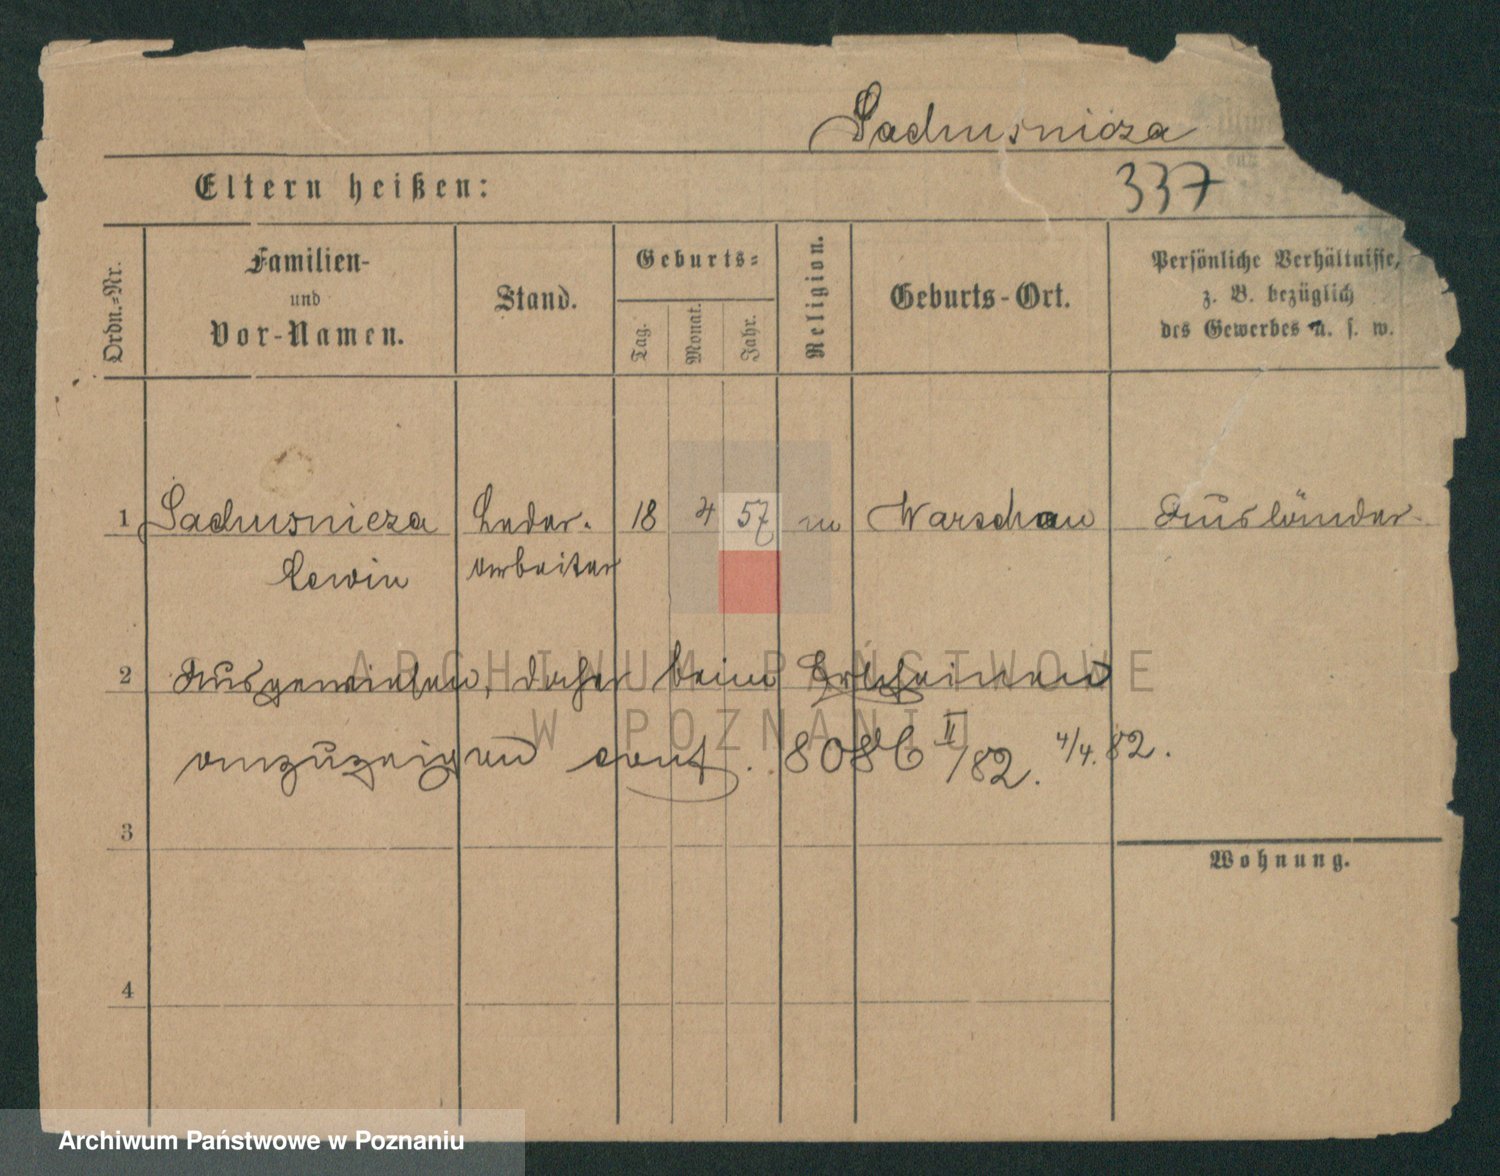 Sachusnicza
Eltern heißen:
337
Ordn.-Nr.
Familien-
und
Vor-Namen.
Stand.
Geburts-
Tag.
Monat.
Jahr.
Religion.
Geburts-Ort.
Persönliche Verhältnisse,
z. B. bezüglich
des Gewerbes u. s. w.
1 Sachusnicza Leder- 18 4 57 m Warschau Ausländer
Lewin arbeiter
2 Ausgewiesen, daher beim Erscheinen
anzuzeigen conf. II/82. 4/4.82.
3
Wohnung.
4
ARCHIWUM PAŃSTWOWE
W POZNANIU
Archiwum Państwowe w Poznaniu